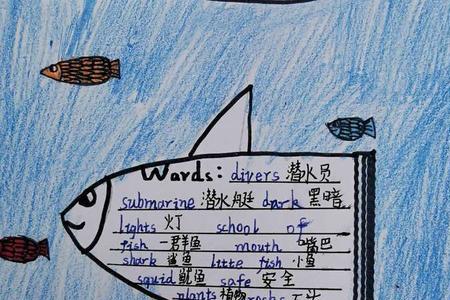 Words: divers 潜水员
submarine 潜水艇 dark 黑暗
lights 灯 school of
fish 一群鱼 mouth 嘴巴
shark 鲨鱼 little fish 小鱼
squid 鱿鱼 safe 安全
plants 植物 rocks